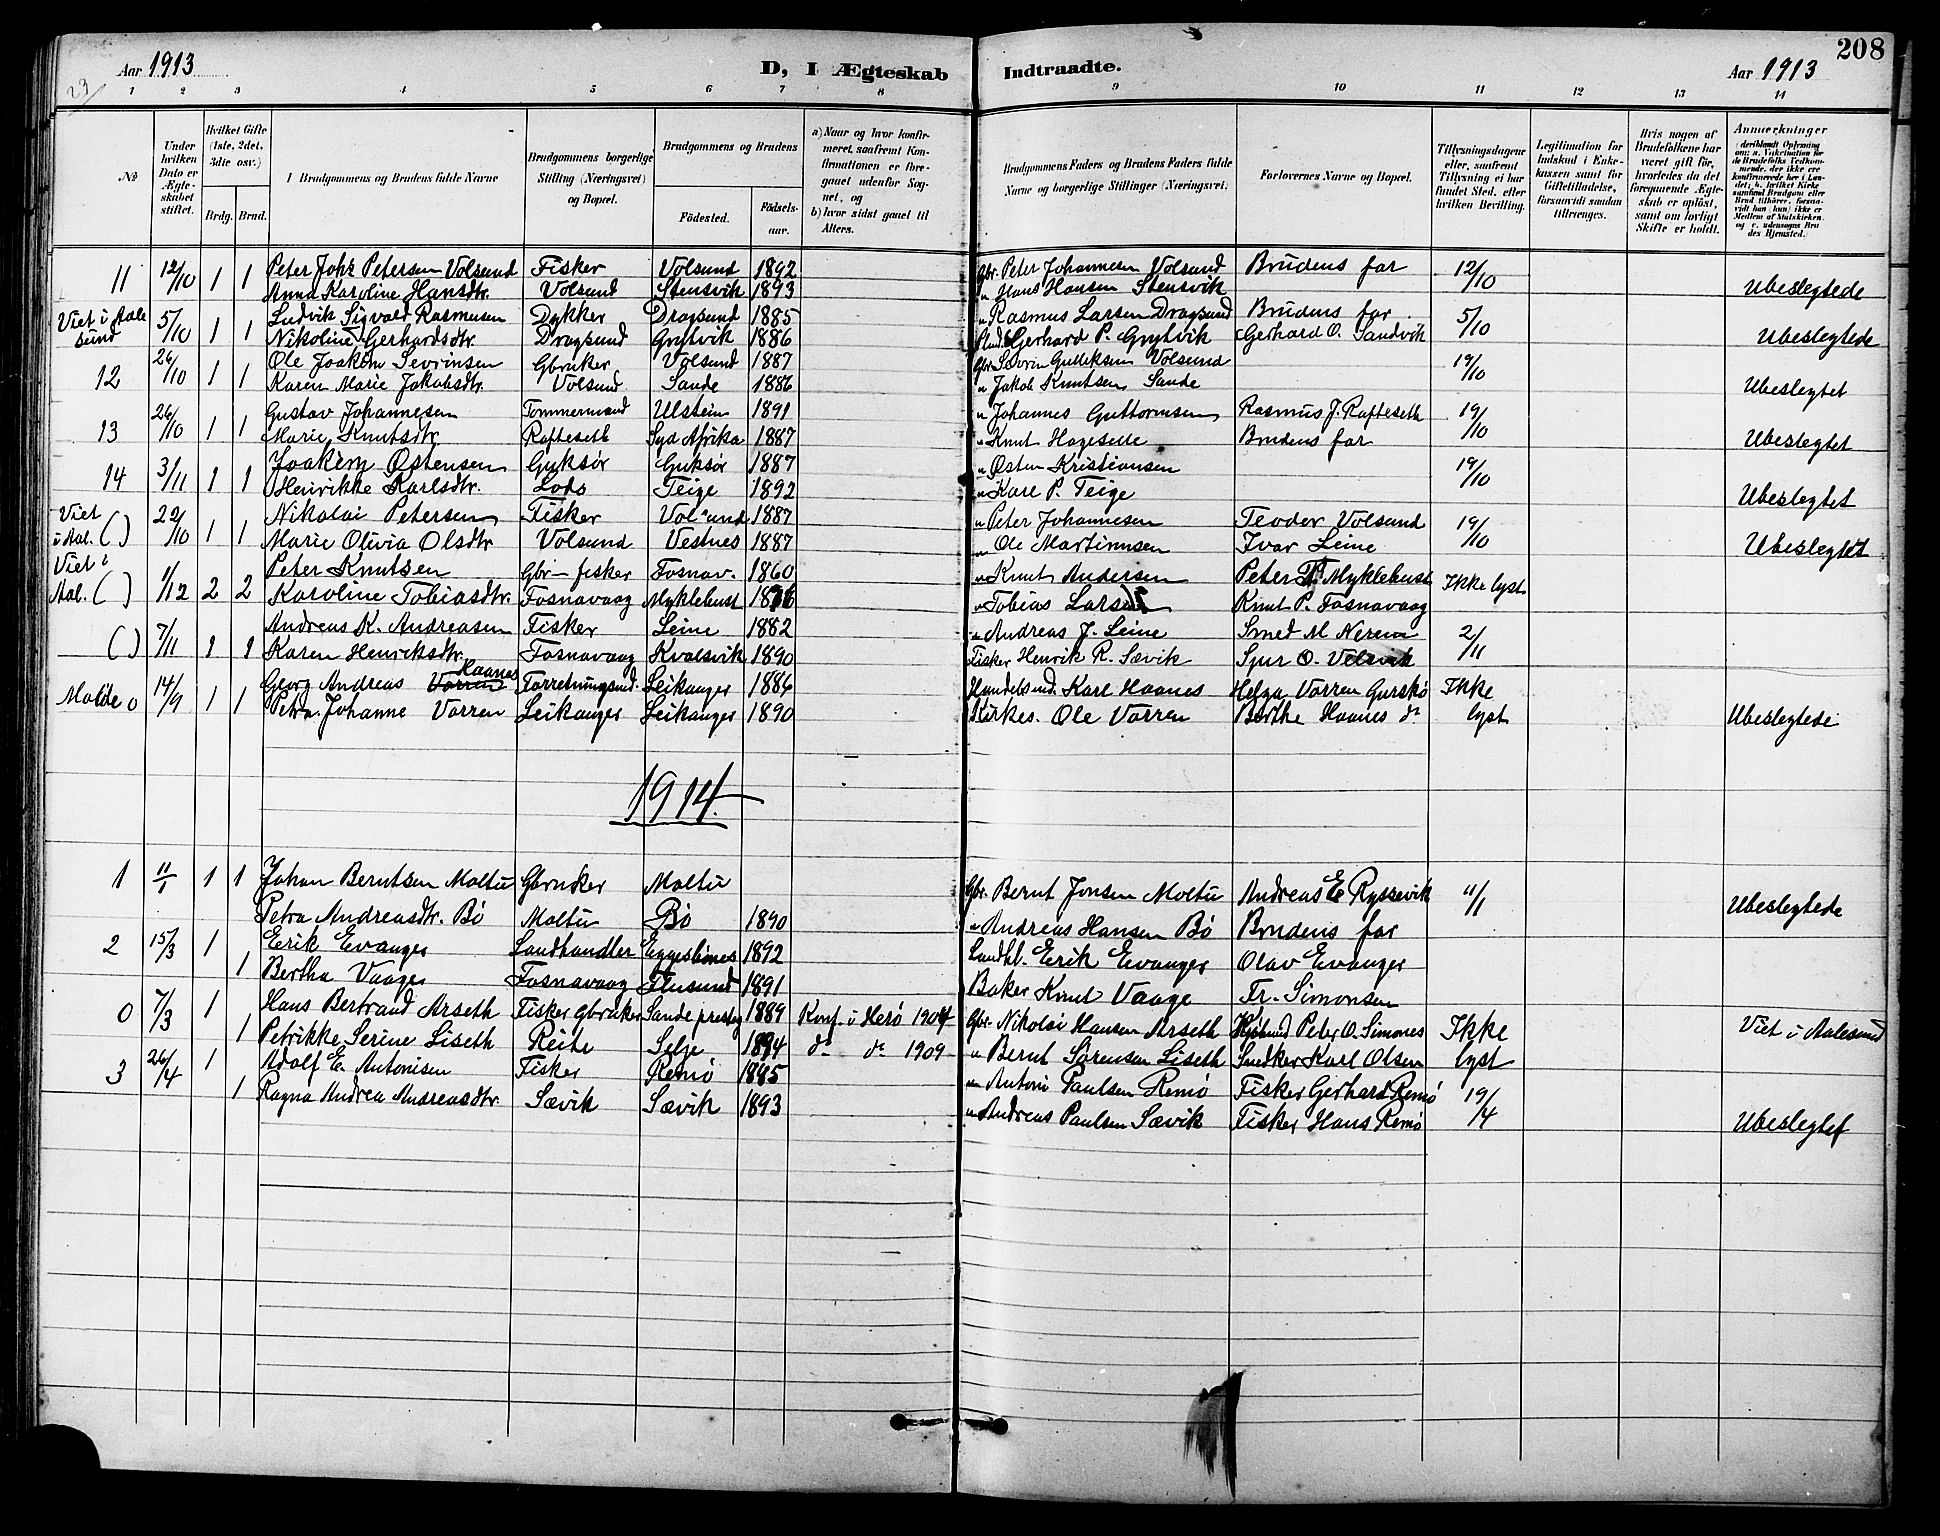 Aar 1913
D, I Ægteskab Indtraadte.
Aar 1913
208
23/
1 2 3 4 5 6 7 8 9 10 11 12 13 14
No
Under hvilken Dato er Ægteskabet stiftet.
Hvilket Gifte (1ste, 2det, 3die osv.)
Brdg. Brud.
I Brudgommens og Brudens fulde Navne
Brudgommens borgerlige Stilling (Næringsvei) og Bopæl.
Brudgommens og Brudens
Fødested. Fødsels-aar.
a) Naar og hvor konfirmeret, saafremt Konfirmationen er foregaaet udenfor Sognet, og
b) hvor sidst gaaet til Alters.
Brudgommens Faders og Brudens Faders fulde Navne og borgerlige Stillinger (Næringsvei.)
Forlovernes Navne og Bopæl.
Tillysningsdagene eller, saafremt Tillysning ei har fundet Sted, efter hvilken Bevilling.
Legitimation for Indskud i Enkekassen samt for Giftetilladelse, forsaavidt saadan tiltrænges.
Hvis nogen af Brudefolkene har været gift før, hvorledes da det foregaaende Ægteskab er opløst, samt om lovligt Skifte er holdt.
Anmærkninger
11 12/10 1 1 Peter Johs Petersen Volsund Fisker Volsund 1892 Gbr. Peter Johannesen Volsund Brudens far 12/10
Anna Karoline Hansdtr. Volsund Stensvik 1893 " Hans Hansen Stensvik Ubeslegtede
Viet i Aalesund 5/10 1 1 Ludvik Sigvald Rasmusen Dykker Dragsund 1885 " Rasmus Larsen Dragsund Brudens far 5/10
Nikoline Gerhardsdtr. Dragsund Grytvik 1886 Gerhard P. Grytvik Gerhard O. Sandvik Ubeslegtede
12 26/10 1 1 Ole Joakim Sevrinsen Gbruker Volsund 1887 Gbr Sevrin Gulleksen Volsund 19/10
Karen Marie Jakobsdtr. Volsund Sande 1886 " Jakob Knutsen Sande Ubeslegtet
13 26/10 1 1 Gustav Johannesen Tømmermand Ulstein 1891 " Johannes Guttormsen Rasmus J. Rafteseth 19/10
Marie Knutsdtr. Rafteseth Syd Afrika 1887 " Knut Hageselle Brudens far Ubeslegtet
14 3/11 1 1 Joakim Østensen Gurksør Gurksør 1887 " Østen Kristiansen 19/10
Henrikke Karlsdtr. Lods Teige 1892 " Karl P. Teige Ubeslegtet
Viet i Aal. ( ) 22/10 1 1 Nikolai Petersen Fisker Volsund 1887 " Peter Johannesen Teodor Volsund 19/10
Marie Olivia Olsdtr Volsund Vestnes 1887 " Ole Martinusen Ivar Leine Ubeslegtet
Viet i Aal. ( ) 1/12 2 2 Peter Knutsen Gbr- fisker Fosnav. 1860 " Knut Andersen Peter Myklebust Ikke lyst
Karoline Tobiasdtr. Fosnavaag Myklebust " Tobias Larsen Knut P. Fosnavaag
( ) 7/11 1 1 Andreas K. Andreasen Fisker Leine 1882 " Andreas J. Leine Smed M Nerem 2/11
Karen Henriksdtr. Fosnavaag Kvalsvik 1890 Fisker Henrik R. Sævik Sjur O. Velsvik
Molde 0 14/9 1 1 Georg Andreas Haanes Forretningsmd. Leikanger 1886 Handelsmd. Karl Haanes Helga Vorren Gurskø Ikke lyst
Petra Johanne Vorren Leikanger Leikanger 1890 Kirkes. Ole Vorren Berthe Haanes do Ubeslegtede
1914.
1 11/1 1 1 Johan Berntsen Moltu Gbruker Moltu Gbr. Bernt Jonsen Moltu Andreas E Ryssevik 11/1
Petra Andreasdtr. Bø Moltu Bø 1890 " Andreas Hansen Bø Brudens far Ubeslegtede
2 15/3 1 Eerik Evanger Landhandler Eggesbønes 1892 Landhl. Erik Evanger Olav Evanger
1 Bertha Vaage Fosnavaag Flusund 1891 Baker Knut Vaage Fr. Simonsen
0 7/3 1 Hans Bertrand Arseth Fisker Gbruker Sande prestg 1889 Konf. i Herø 1904 Gbr. Nikolai Hansen Arseth Kjøbmd Peter O. Simones Ikke lyst Viet i Aalesund
1 Petrikke Serine Liseth Reite Selje 1894 do do 1909 " Bernt Sørensen Liseth Snedker Karl Olsen
3 26/4 1 Adolf E. Antonisen Fisker Remø 1885 " Antoni Paulsen Remø Fisker Gerhard Remø 19/4
1 Ragna Andrea Andreasdtr. Sævik Sævik 1893 " Andreas Paulsen Sævik Fisker Hans Remø Ubeslegtet